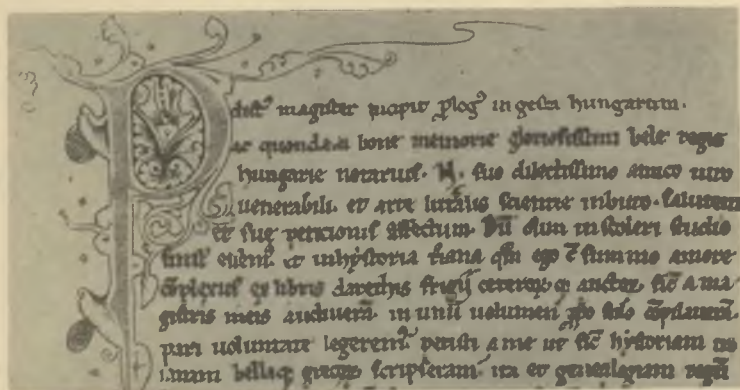 P dict᷒ magister incipit ꝓlog᷒ in gesta hungarum.
ac quondam bone memorie gloriosissimi bele regis
hungarie notarius. N. suo dilectissimo amico uiro
uenerabili. et arte litt̄alis scientie inbuto. Salutem
et sue peticionis effectum. Dū olim in scolari studio
simul essem᷒. et in hystoria t̄iana q̄m ego c̄ summo amore
c̄plexus ex libris darethis frigii ceterorūq; auctor, sic̄ a ma
gistris meis audiuerā. in unū uolumen ꝓprio stilo c̄pilauerā.
pari uoluntate legerem᷒. petisti a me ut sic̄ hystoriam tro
ianam bellaq; grecor scripseram. ita et genealogiam regū